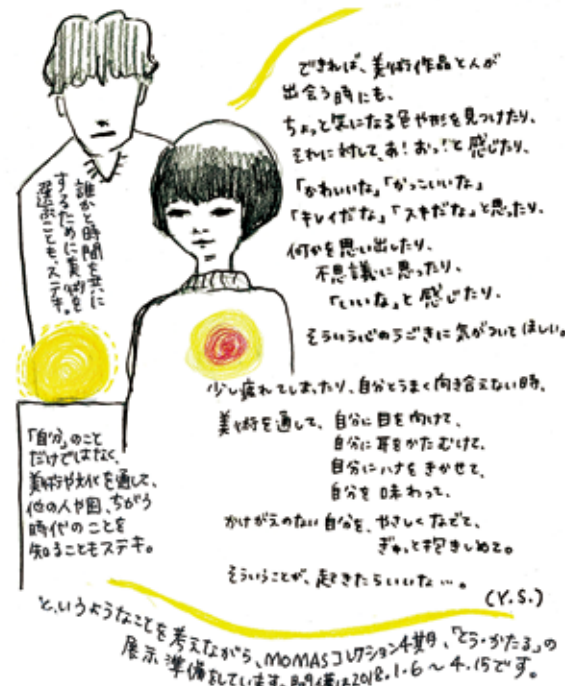 できれば、美術作品と人が
出会う時にも、
ちょっと気になる色や形を見つけたり、
それに対して、あ!おっ!と感じたり、
「かわいいな」「かっこいいな」
「キレイだな」「スキだな」と思ったり、
何かを思い出したり、
不思議に思ったり、
「いいな」と感じたり、
そういう心のうごきに気がついてほしい。
誰かと時間を共に
するために美術を
選ぶことも、ステキ。
少し疲れてしまったり、自分とうまく向き合えない時、
美術を通して、自分に目を向けて、
自分に耳をかたむけて、
自分にハナをきかせて、
自分を味わって、
かけがえのない自分を、やさしくなでて、
ぎゅっと抱きしめて。
そういうことが、起きたらいいな…。
(Y.S.)
「自分」のこと
だけではなく、
美術や文化を通して、
他の人や国、ちがう
時代のことを
知ることもステキ。
と、いうようなことを考えながら、MOMASコレクション4期目、「とう・かたる」の
展示準備をしています。開催は2018.1.6〜4.15です。